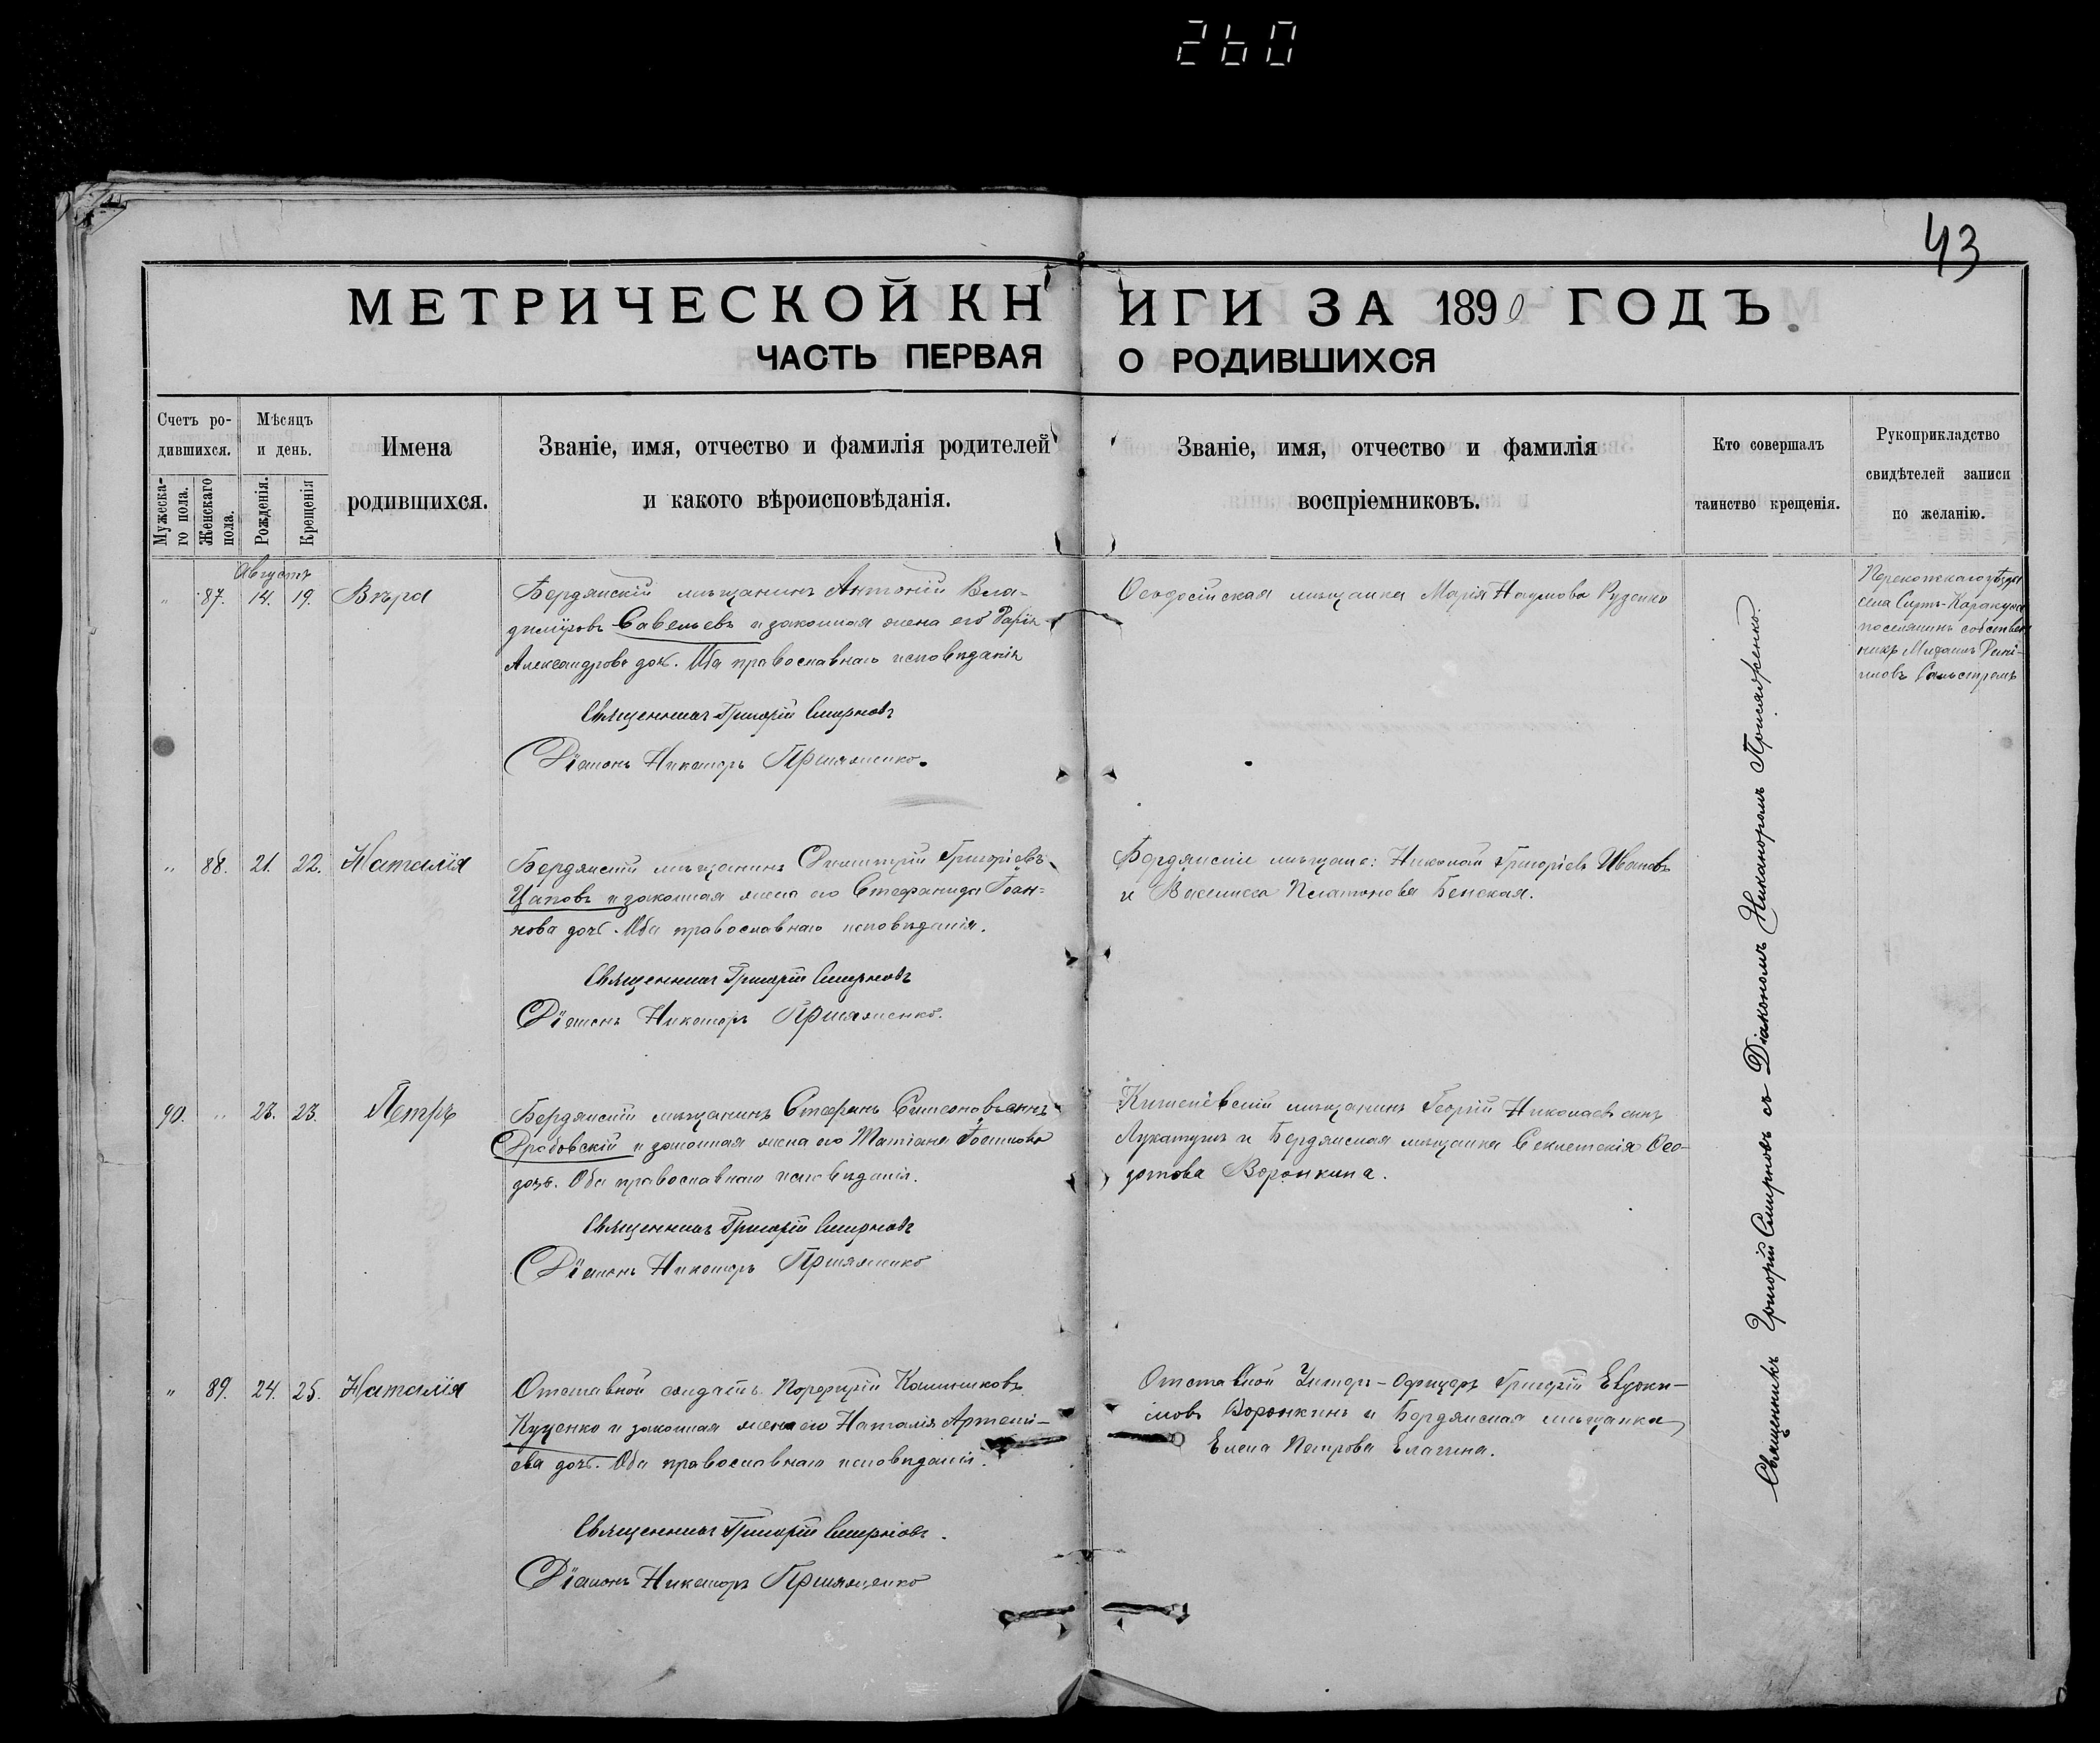 260
43
МЕТРИЧЕСКОЙ КНИГИ ЗА 1890 ГОДЪ.
ЧАСТЬ ПЕРВАЯ О РОДИВШИХСЯ
Счетъ ро-
дившихся.
Мужеска-
го пола.
Женскаго
пола.
Мѣсяцъ
и день.
Рожденія.
Крещенія
Имена
родившихся.
Званіе, имя, отчество и фамилія родителей
и какого вѣроисповѣданія.
Званіе, имя, отчество и фамилія
воспріемниковъ.
Кто совершалъ
таинство крещенія.
Рукоприкладство
свидѣтелей записи
по желанію.
Августъ
" 87. 14. 19. Вѣра
Бердянскій мѣщанинъ Антоній Вла-
диміровъ Савельевъ и законная жена его Дарія
Александрова доч. Оба православнаго исповѣданія
Священникъ Григорій Смирновъ
Діаконъ Никаноръ Присяженко.
Ѳеодосійская мѣщанка Марія Наумова Руденко
Перекопскаго уѣзда
села
поселянинъ собствен
никъ Михаилъ
" 88. 21. 22. Наталія
Бердянскій мѣщанинъ Димитрій Григоріевъ
Цаповъ и законная жена его Стефанида Іоан-
нова доч. Оба православнаго исповѣданія.
Священникъ Григорій Смирновъ
Діаконъ Никаноръ Присяженко.
Бердянскіе мѣщане: Николай Григоріевъ Ивановъ
и Василиса Платонова Бенская.
90. " 23. 23. Петръ
Бердянскій мѣщанинъ Стефанъ Симеоновъ сынъ
Дробовскій и законная жена его Татіана Іоаннова
доч. Оба православнаго исповѣданія.
Священникъ Григорій Смирновъ
Діаконъ Никаноръ Присяженко
Кишенёвскій мѣщанинъ Георгій Николаевъ сынъ
и Бердянская мѣщанка Секлетекія Ѳео-
дотова Воронкина.
" 89. 24. 25. Наталія
Отставной солдатъ Порфирій Калинниковъ
Куценко и законная жена его Наталія Артемі-
ева доч. Оба православнаго исповѣданія.
Священникъ Григорій Смирновъ.
Діаконъ Никаноръ Присяженко
Отставной Унтеръ-Офицеръ Григорій Евдоки-
мовъ Воронкинъ и Бердянская мѣщанка
Елена Петрова Елагина.
Священникъ Григорій Смирновъ съ Діакономъ Никаноромъ Присяженко.